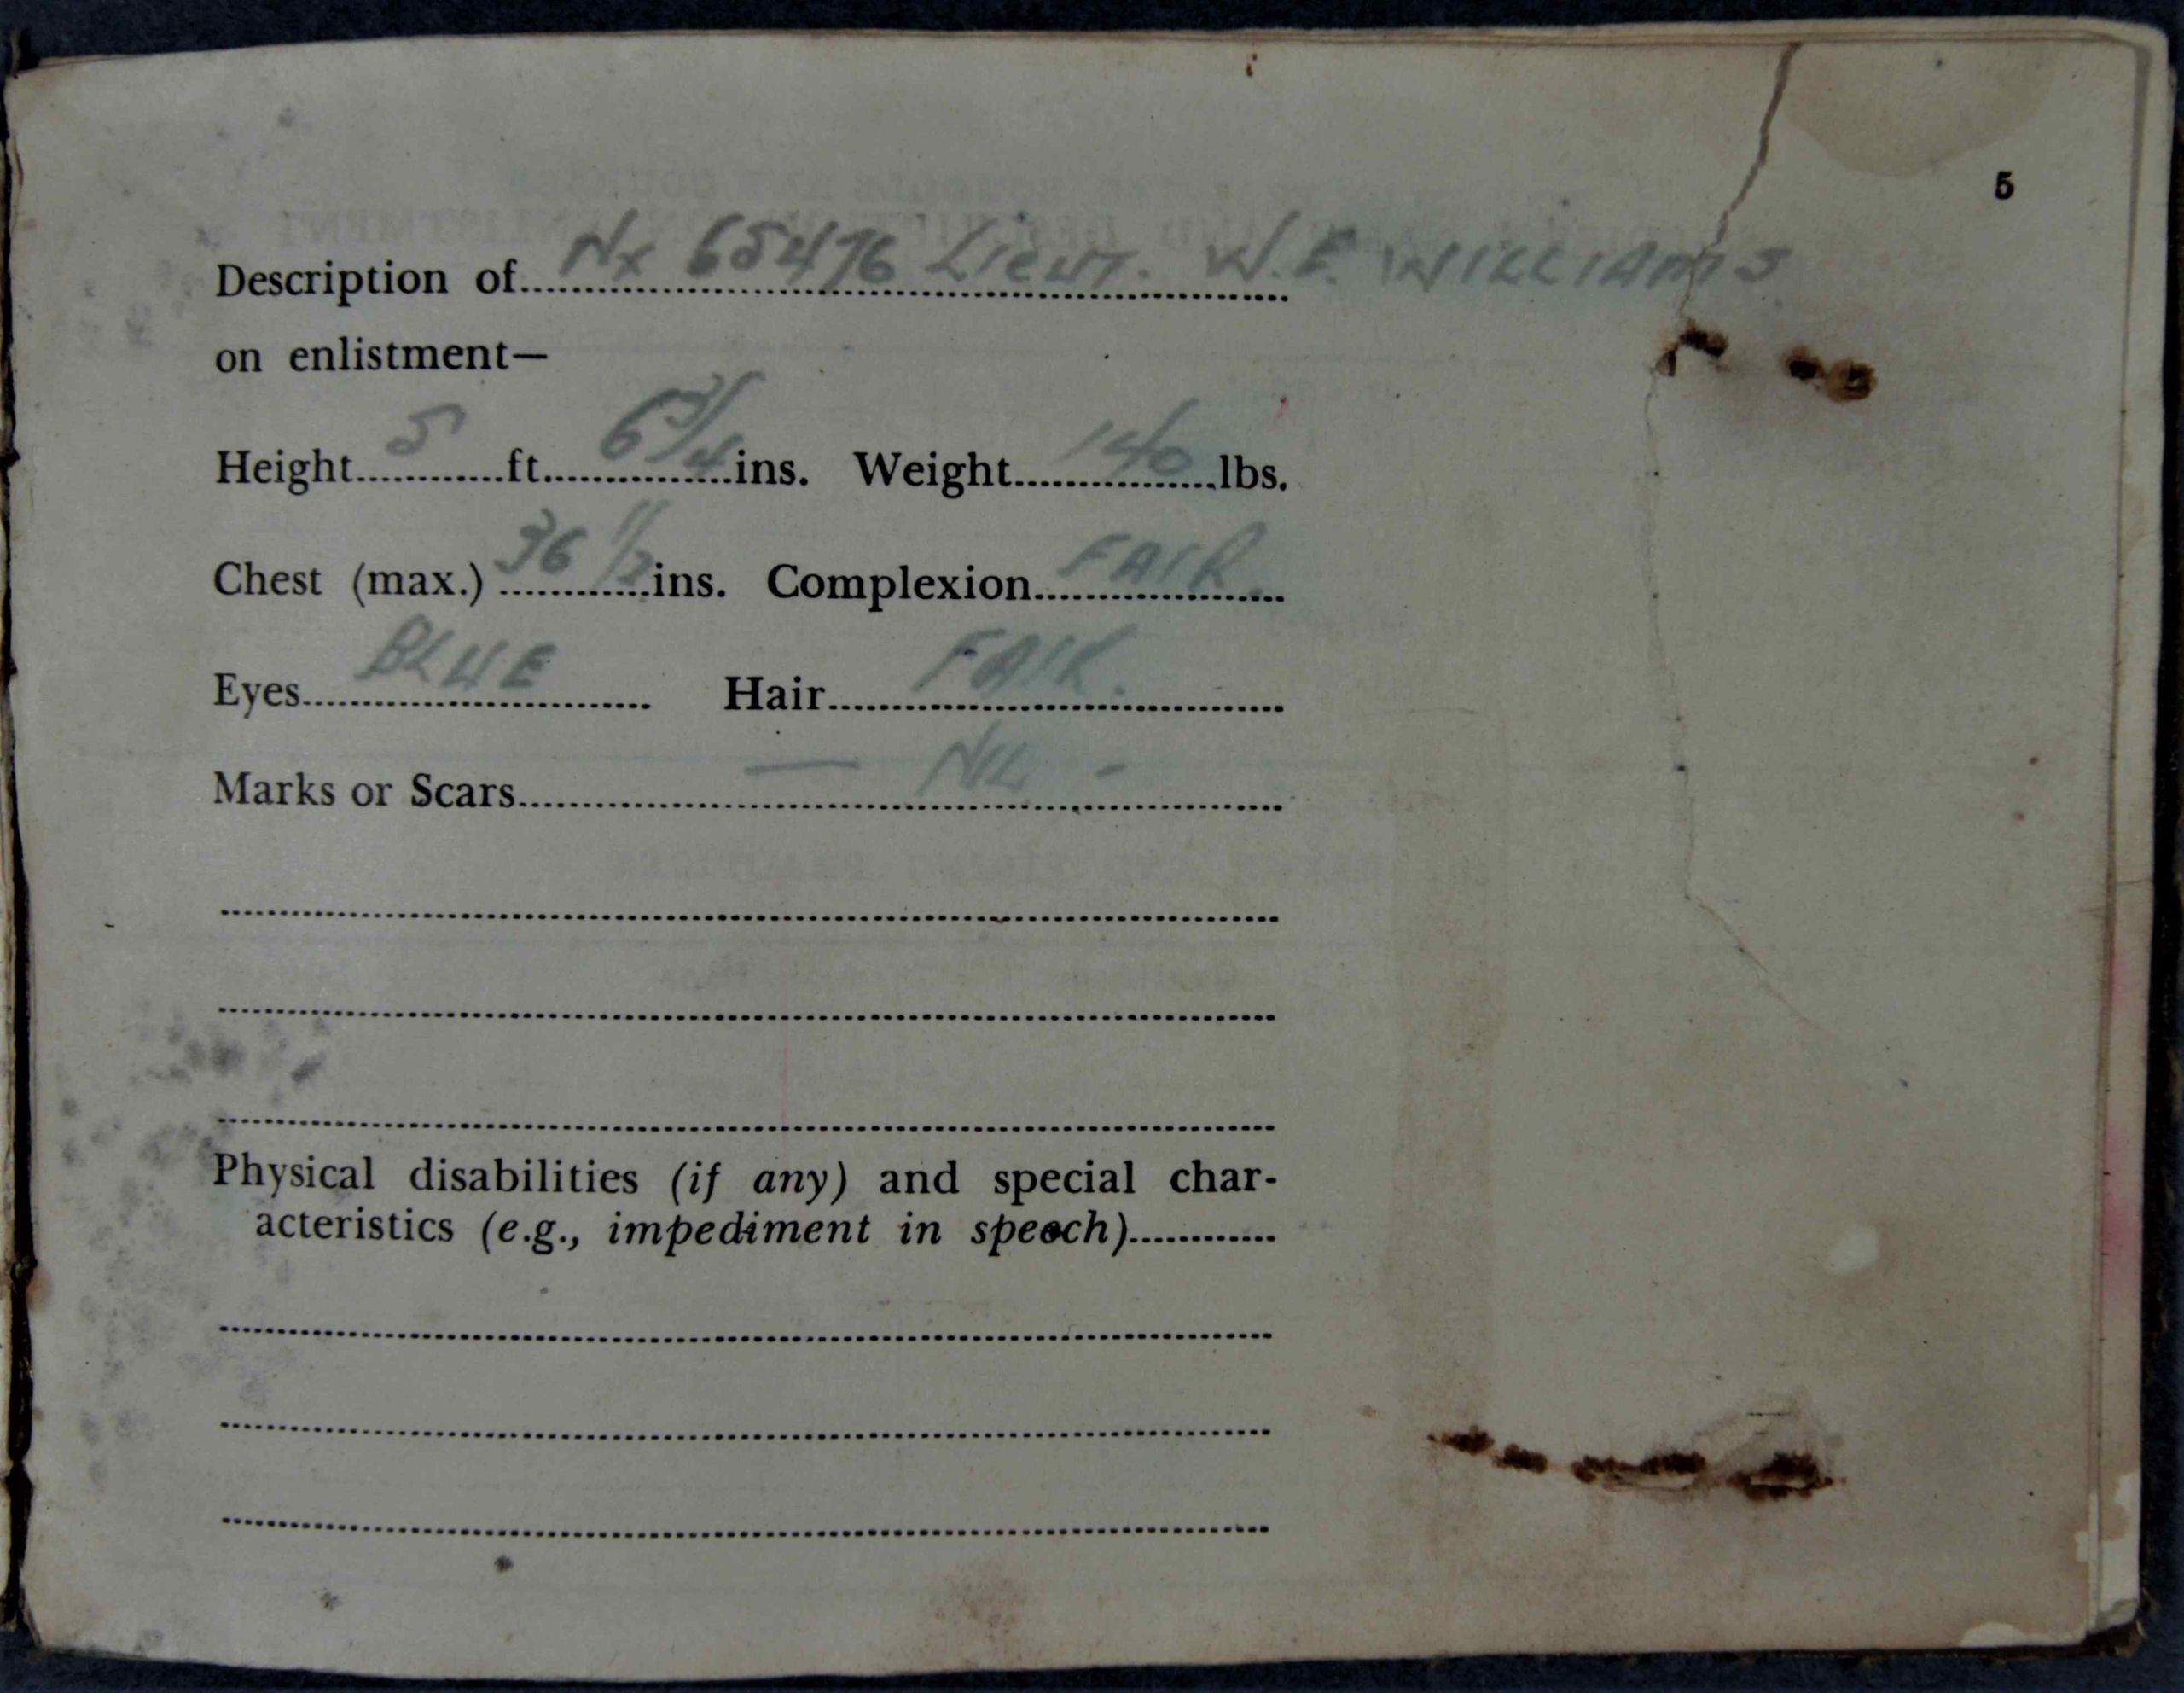 5
Description of Nx 65476 Lieut. W.E. WILLIAMS
on enlistment—
Height 5 ft. 6 3/4 ins. Weight 140 lbs.
Chest (max.) 36 1/2 ins. Complexion FAIR
Eyes BLUE Hair FAIR.
Marks or Scars — NIL -
Physical disabilities (if any) and special char-
acteristics (e.g., impediment in speech)